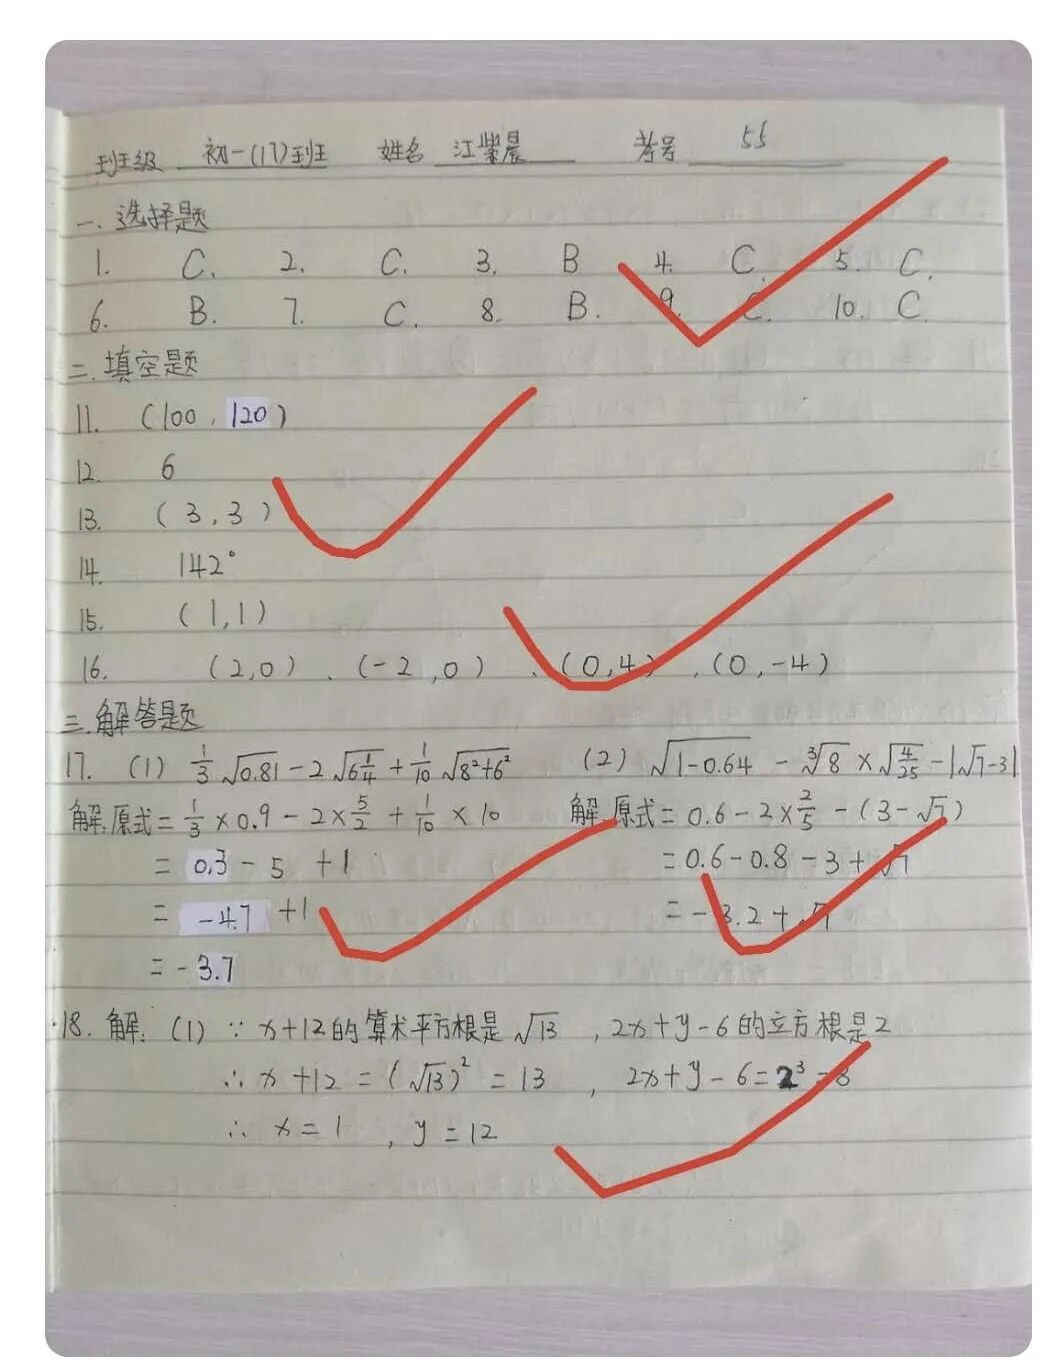 班级 初一(17)班 姓名 江紫晨 考号 55
一、选择题
1. C. 2. C. 3. B 4. C. 5. C.
6. B. 7. C. 8. B. 9. C. 10. C.
二.填空题
11. (100, 120)
12. 6
13. (3,3)
14. 142°
15. (1,1)
16. (2,0)、(-2,0)、(0,4)、(0,-4)
三.解答题
17. (1) 1/3√0.81-2√6 1/4+1/10√8²+6² (2) √1-0.64 - ³√8×√4/25-|√7-3|
解:原式=1/3×0.9-2×5/2+1/10×10 解:原式=0.6-2×2/5-(3-√7)
=0.3-5+1 =0.6-0.8-3+√7
=-4.7+1 =-3.2+√7
=-3.7
18. 解:(1)∵x+12的算术平方根是√13,2x+y-6的立方根是2
∴x+12=(√13)²=13,2x+y-6=2³=8
∴x=1,y=12